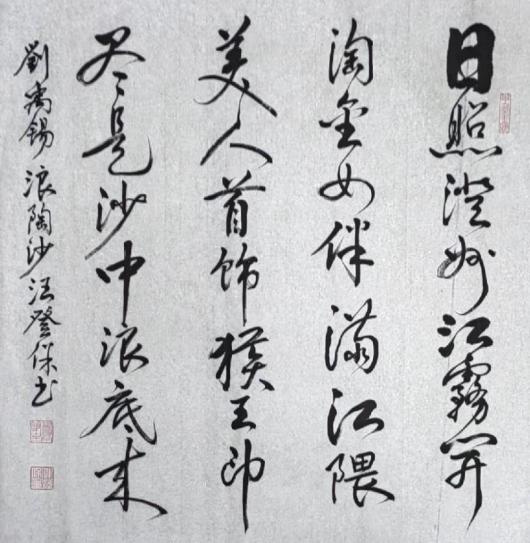 日照澄洲江霧開
淘金女伴滿江隈
美人首飾侯王印
尽是沙中浪底来
劉禹錫浪陶沙汪登保书